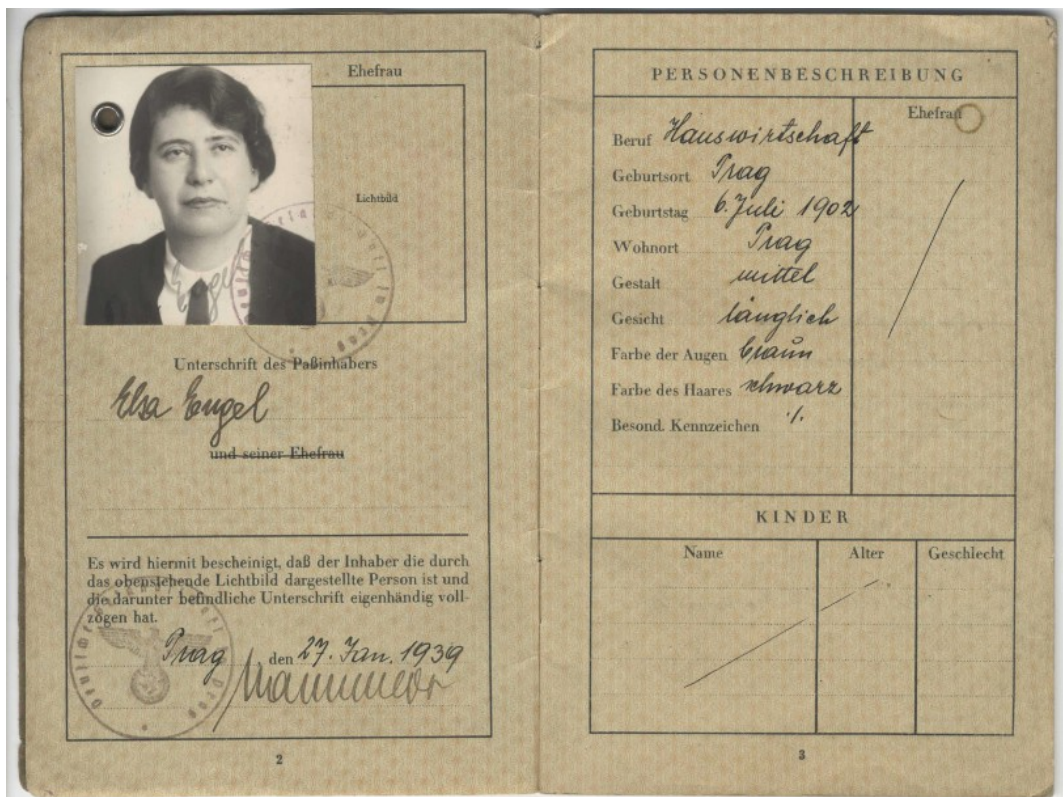 Ehefrau
Lichtbild
Engel
Unterschrift des Paßinhabers
Elsa Engel
und seiner Ehefrau
Es wird hiermit bescheinigt, daß der Inhaber die durch
das obenstehende Lichtbild dargestellte Person ist und
die darunter befindliche Unterschrift eigenhändig voll-
zogen hat.
Prag, den 27. Jan. 1939
2
PERSONENBESCHREIBUNG
Ehefrau
Beruf Hauswirtschaft
Geburtsort Prag
Geburtstag 6. Juli 1902
Wohnort Prag
Gestalt mittel
Gesicht länglich
Farbe der Augen braun
Farbe des Haares schwarz
Besond. Kennzeichen ·/.
KINDER
Name Alter Geschlecht
3